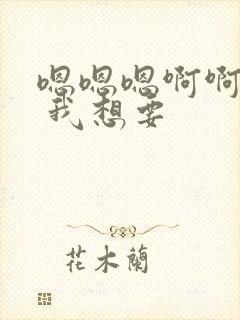 嗯嗯嗯啊啊
我想要
花木蘭